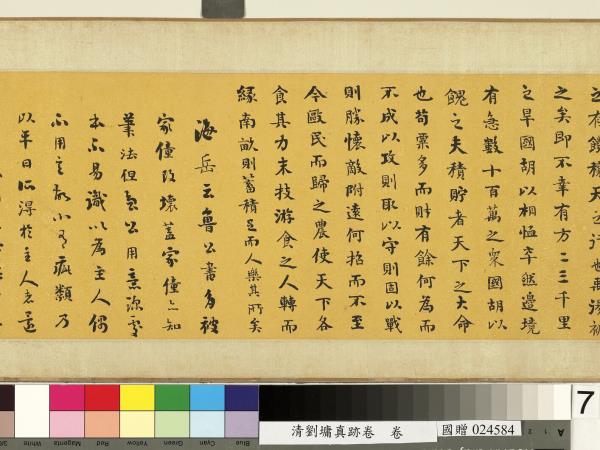 之有饑穰天之行也禹湯被
之矣即不幸有方二三千里
之旱國胡以相恤卒然邊境
有急數十百萬之眾國胡以
餽之夫積貯者天下之大命
也苟粟多而財有餘何為而
不成以攻則取以守則固以戰
則勝懷敵附遠何招而不至
今毆民而歸之農使天下各
食其力末技游食之人轉而
緣南畝則蓄積足而人樂其所矣
海岳云魯公書多被
家僮改壞蓋家僮亦知
筆法但魯公用意深處
本不易識以為主人偶
不用意故小有疵纇乃
以平日所得於主人者還
清劉墉真跡卷 卷
國贈 024584
7
3/Color
White
Magenta
Red
Yellow
Green
Cyan
Blue
A 1 2